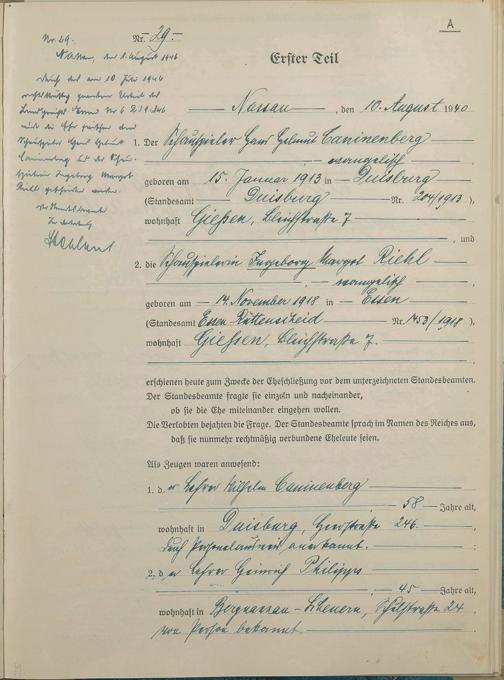 A
Nr. 29.
Nassau, den 1. August 1946
Durch das am 10. Juli 1946
rechtskräftig gewordene Urteil des
Landgerichts
ist die Ehe zwischen dem
Schauspieler Hans Helmut
Caninenberg und der Schau-
spielerin Ingeborg Margot
Riehl geschieden worden.
Der Standesbeamte
Nr. 29.
Erster Teil
Nassau, den 10. August 1940
1. Der Schauspieler Hans Helmut Caninenberg
evangelisch
geboren am 15. Januar 1913 in Duisburg
(Standesamt Duisburg Nr. 204/1913),
wohnhaft Gießen, Bleichstraße 7
, und
2. die Schauspielerin Ingeborg Margot Riehl
evangelisch
geboren am 14. November 1918 in Essen
(Standesamt Essen-Rüttenscheid Nr. 1453/1918),
wohnhaft Gießen, Bleichstraße 7.
erschienen heute zum Zwecke der Eheschließung vor dem unterzeichneten Standesbeamten.
Der Standesbeamte fragte sie einzeln und nacheinander,
ob sie die Ehe miteinander eingehen wollen.
Die Verlobten bejahten die Frage. Der Standesbeamte sprach im Namen des Reiches aus,
daß sie nunmehr rechtmäßig verbundene Eheleute seien.
Als Zeugen waren anwesend:
1. der Lehrer Wilhelm Caninenberg
58 Jahre alt,
wohnhaft in Duisburg, Heerstraße 246.
durch Personalausweis anerkannt.
2. der Lehrer Heinrich Philipps
, 45 Jahre alt,
wohnhaft in Bergnassau-Scheuern, Schulstraße 24
von Person bekannt.